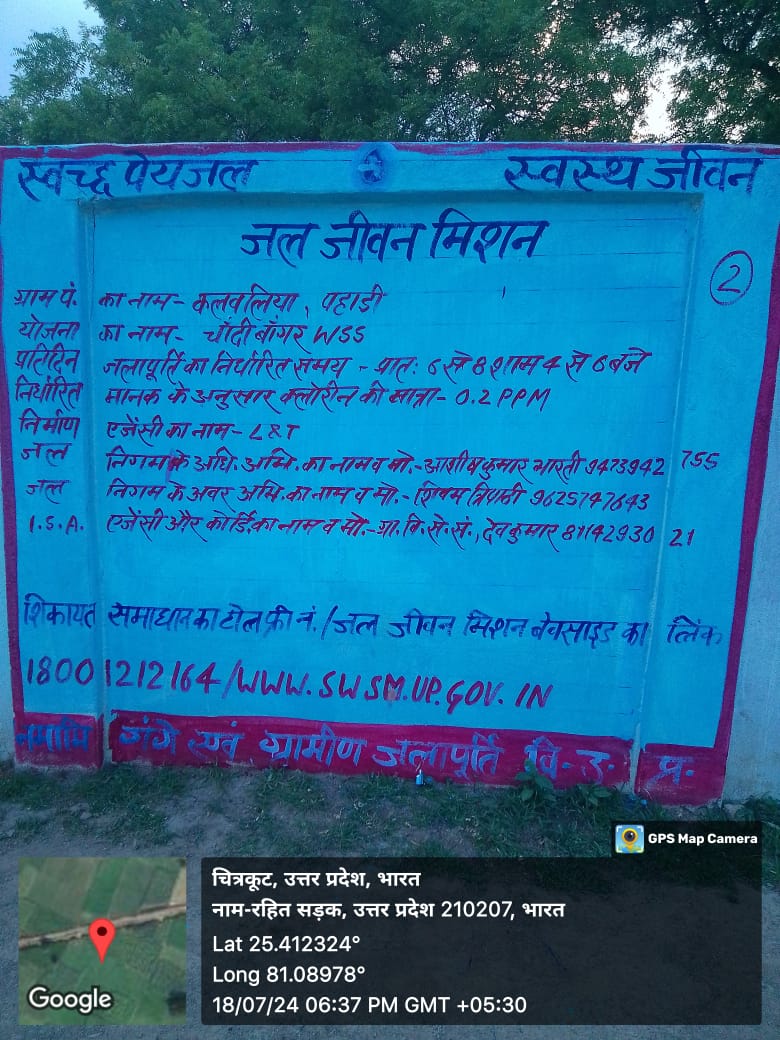 स्वच्छ पेयजल स्वस्थ जीवन
जल जीवन मिशन
2
ग्राम पं. का नाम - कलवलिया, पहाडी
योजना का नाम - चाँदी बाँगर WSS
प्रतिदिन जलापूर्ति का निर्धारित समय - प्रात: 6 से 8 शाम 4 से 6 बजे
निर्धारित मानक के अनुसार क्लोरीन की मात्रा - 0.2 PPM
निर्माण एजेंसी का नाम - L&T
जल निगम के अधि. अभि. का नाम व मो. - आशीष कुमार भारती 9473942 755
जल निगम के अवर अभि. का नाम व मो. - शिवम त्रिपाठी 9625747643
I.S.A. एजेंसी और कोर्डि. का नाम व मो. - ग्रा. वि. से. सं., देवकुमार 81142930 21
शिकायत समाधान का टोल फ्री नं. / जल जीवन मिशन बेवसाइड का लिंक
1800 1212164 / WWW. SWSM.UP.GOV. IN
नमामि गंगे एवं ग्रामीण जलापूर्ति वि. उ. प्र.
GPS Map Camera
चित्रकूट, उत्तर प्रदेश, भारत
नाम-रहित सड़क, उत्तर प्रदेश 210207, भारत
Lat 25.412324°
Long 81.08978°
18/07/24 06:37 PM GMT +05:30
Google